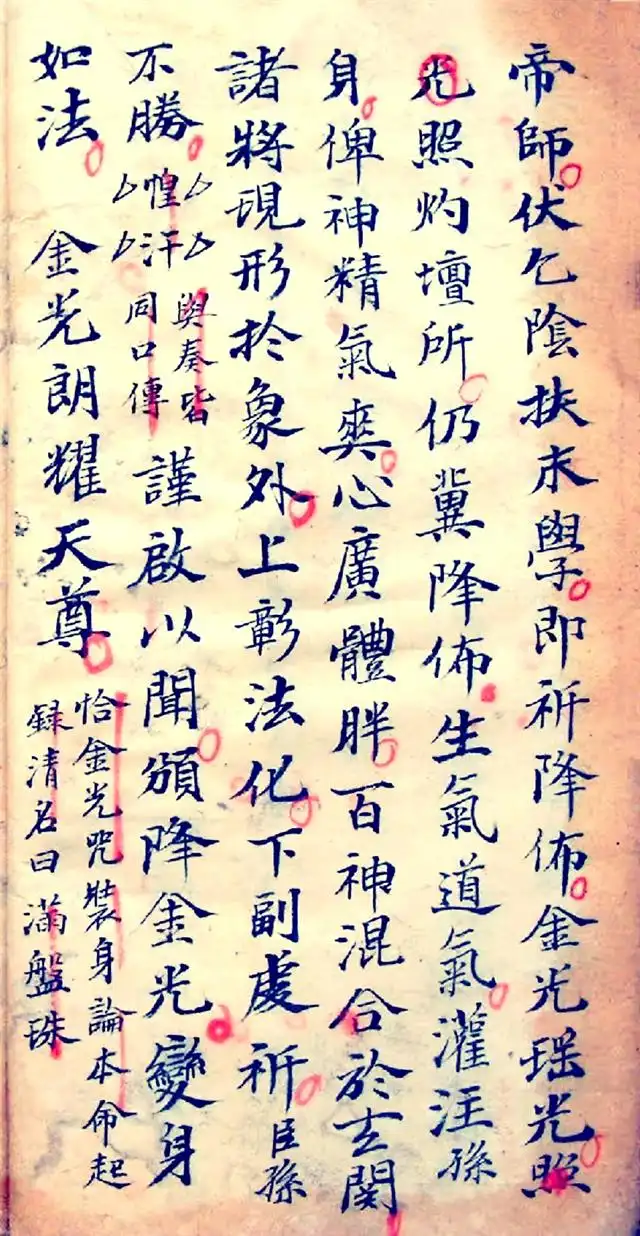 帝師伏乞陰扶末學即祈降佈金光瑶光照
光照灼壇所仍冀降佈生氣道氣灌注孫
身俾神精氣爽心廣體胖百神混合於玄関
諸將現形扵象外上彰法化下副虔祈臣孫
不勝惶汗與奏皆同口傳謹啟以聞頒降金光變身
如法 金光朗耀天尊恰金光咒裝身論本命起録清名曰滿盤珠